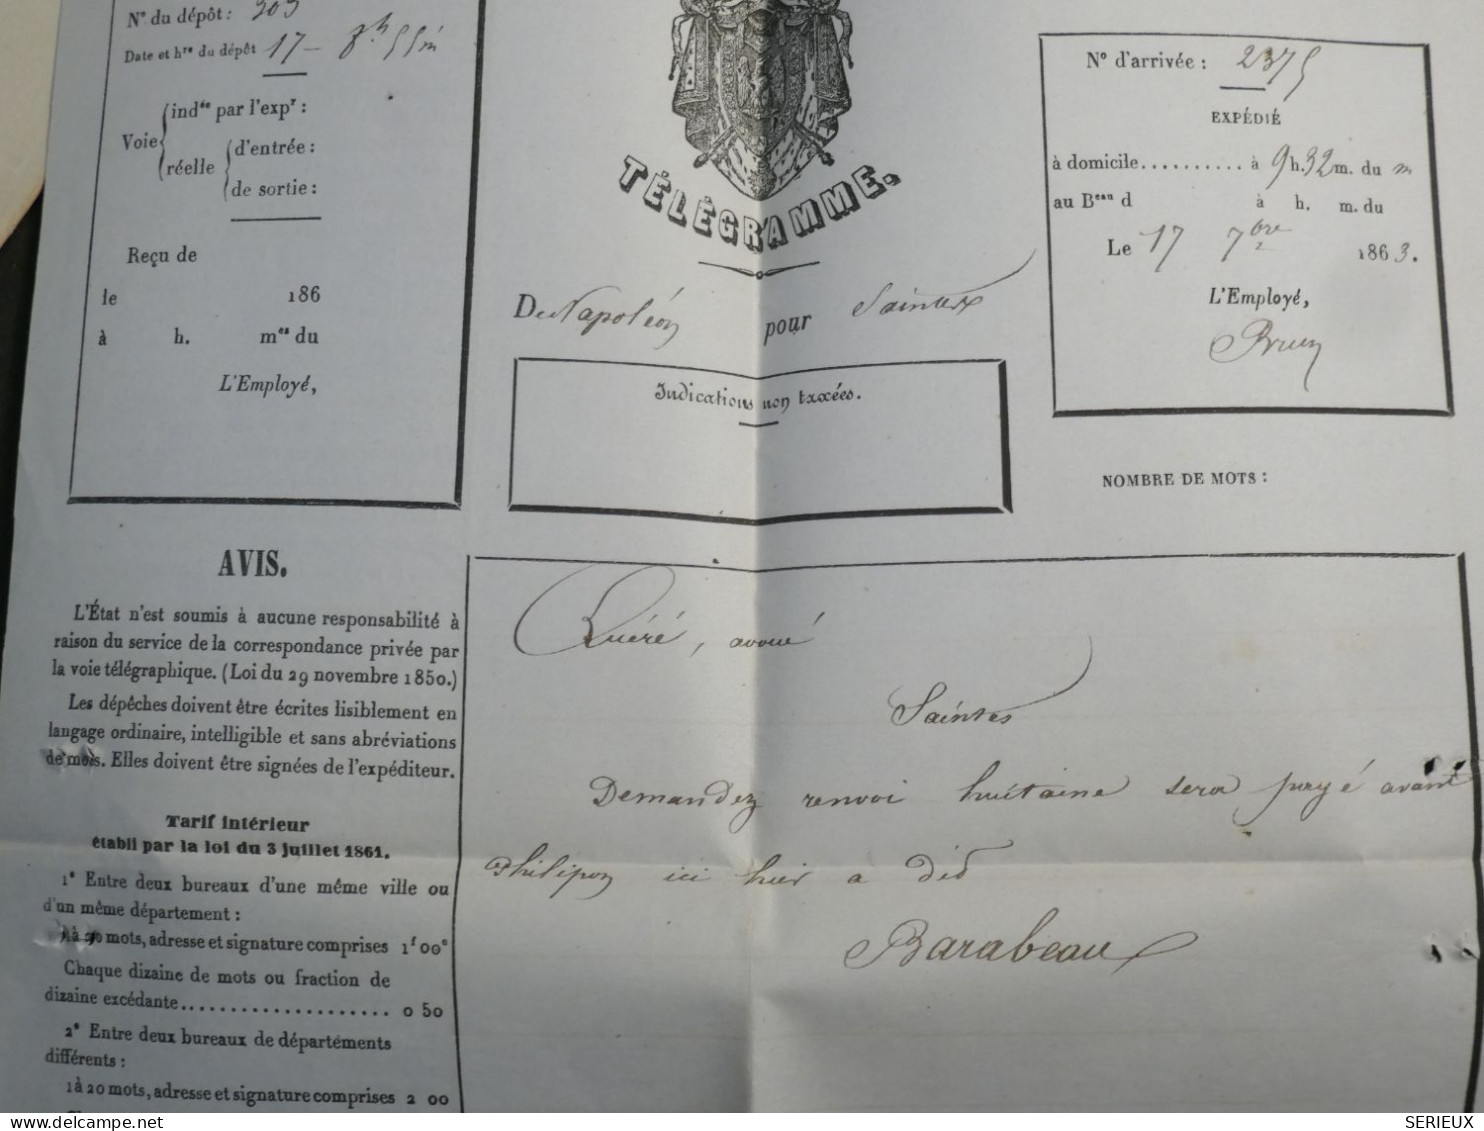 N° du dépôt : 303
Date et hre du dépôt 17 - 8h 55m
Voie
indée par l'expr :
réelle
d'entrée :
de sortie :
Reçu de
le 186
à h. mes du
L'Employé,
TÉLÉGRAMME.
De Napoléon pour Saintes
Indications non taxées.
N° d'arrivée : 2375
EXPÉDIÉ
à domicile.......... à 9 h. 32 m. du m
au Beau d à h. m. du
Le 17 7bre 1863.
L'Employé,
NOMBRE DE MOTS :
AVIS.
L'État n'est soumis à aucune responsabilité à
raison du service de la correspondance privée par
la voie télégraphique. (Loi du 29 novembre 1850.)
Les dépêches doivent être écrites lisiblement en
langage ordinaire, intelligible et sans abréviations
de mots. Elles doivent être signées de l'expéditeur.
Tarif intérieur
établi par la loi du 3 juillet 1861.
1° Entre deux bureaux d'une même ville ou
d'un même département :
1 à 20 mots, adresse et signature comprises 1f 00c
Chaque dizaine de mots ou fraction de
dizaine excédante.................... 0 50
2° Entre deux bureaux de départements
différents :
1 à 20 mots, adresse et signature comprises 2 00
Quéré, avoué
Saintes
Demandez renvoi huitaine sera payé avant
Philipon ici hier a dit
Barabeau
delcampe.net
SERIEUX